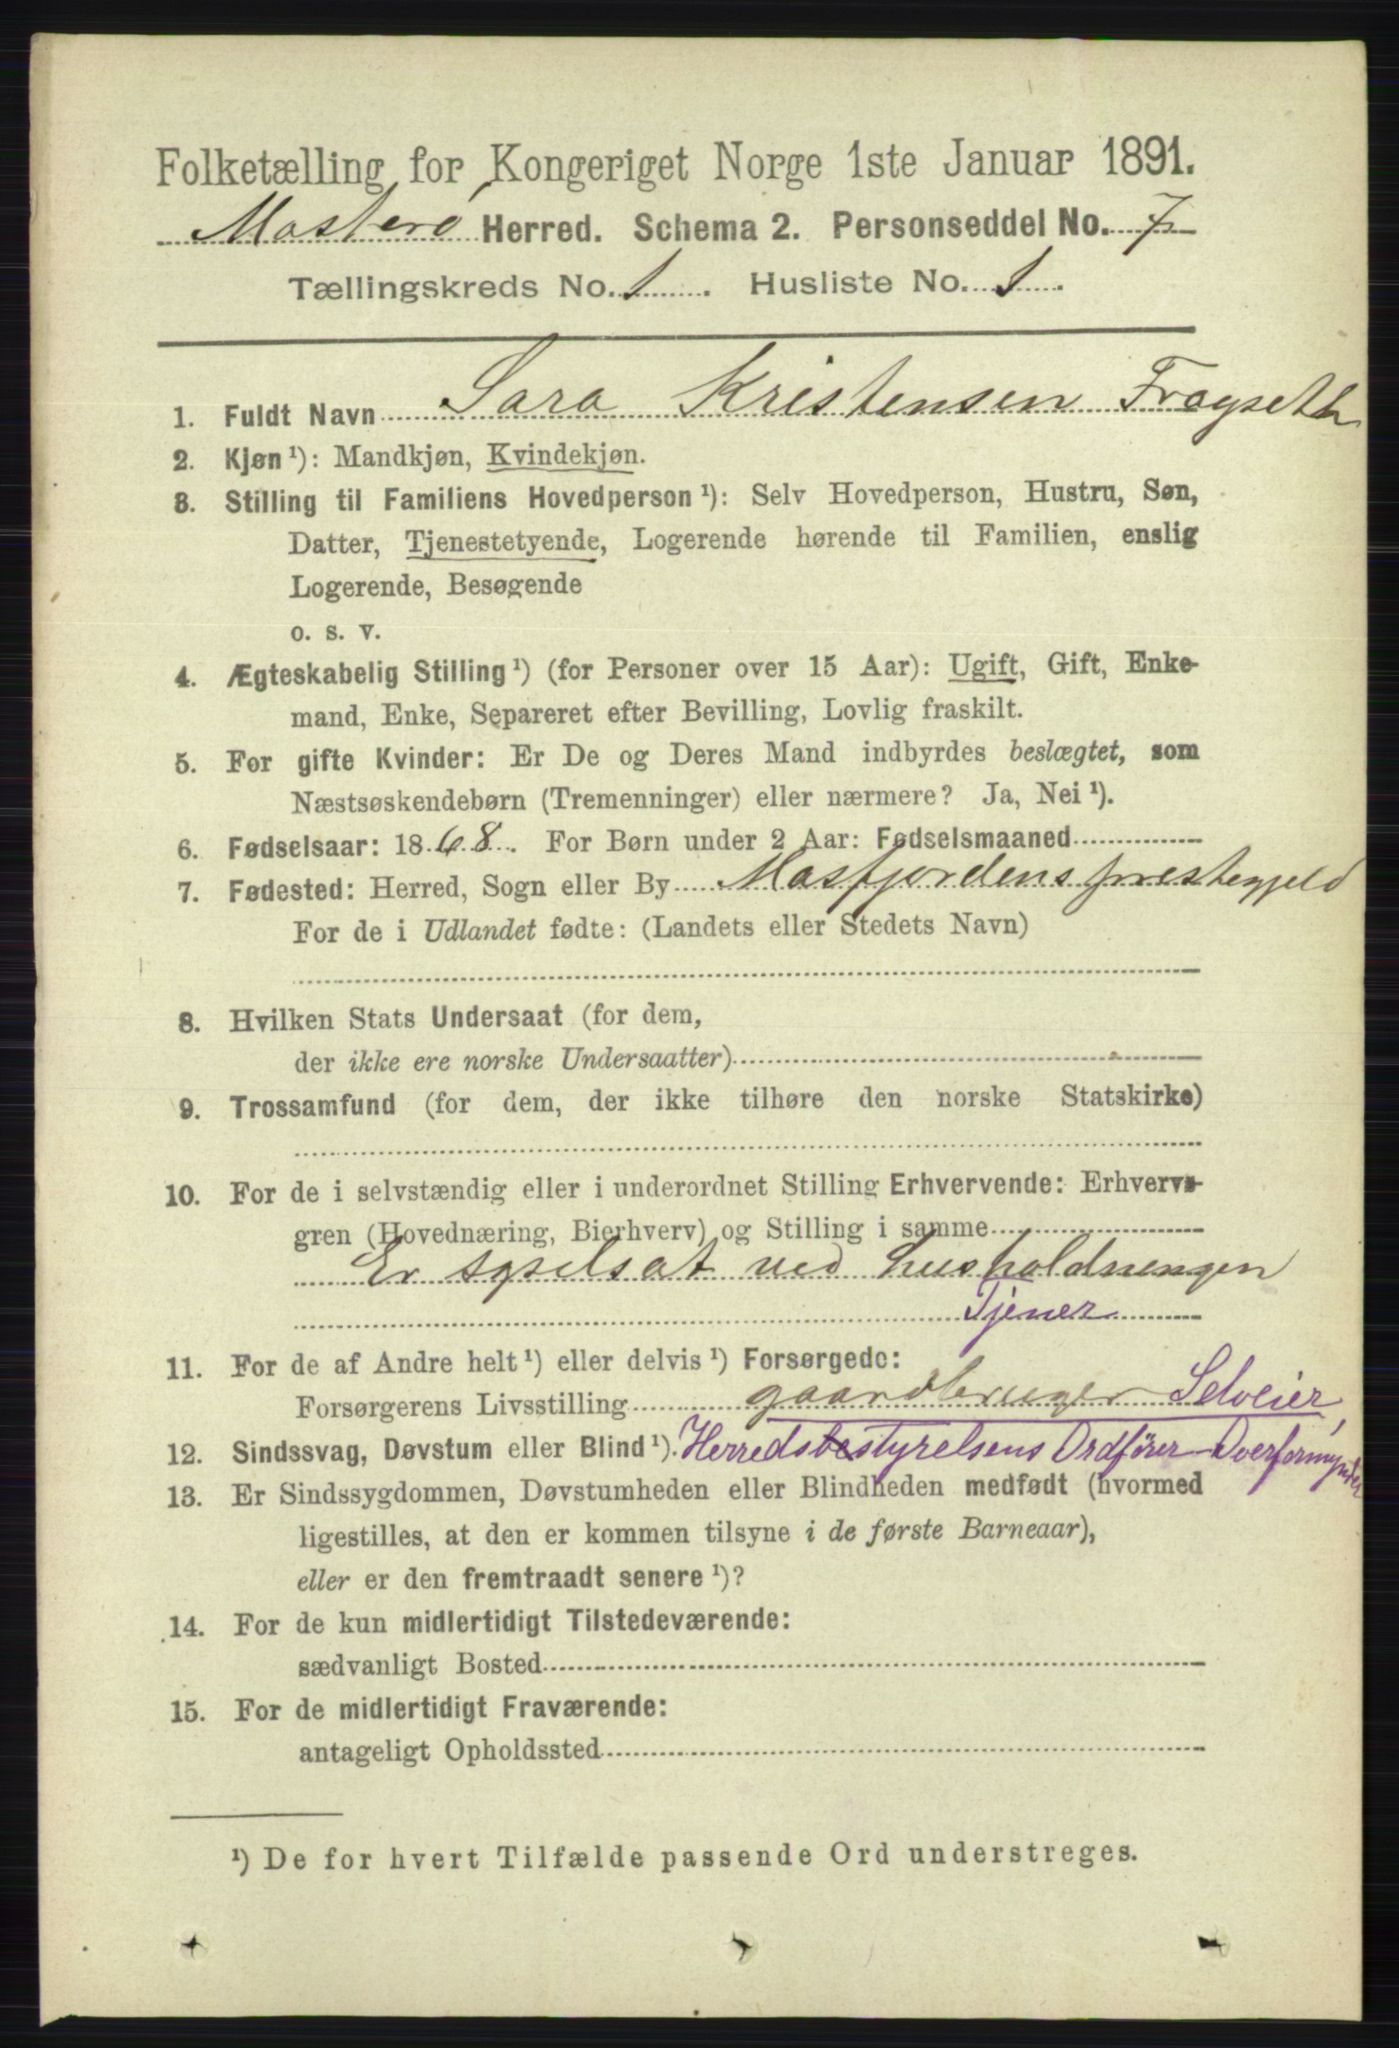 Folketælling for Kongeriget Norge 1ste Januar 1891.
Mosterø Herred. Schema 2. Personseddel No. 7
Tællingskreds No. 1. Husliste No. 1.
1. Fuldt Navn Sara Kristensen Frøyseth
2. Kjøn ¹): Mandkjøn, Kvindekjøn.
3. Stilling til Familiens Hovedperson ¹): Selv Hovedperson, Hustru, Søn,
Datter, Tjenestetyende, Logerende hørende til Familien, enslig
Logerende, Besøgende
o. s. v.
4. Ægteskabelig Stilling ¹) (for Personer over 15 Aar): Ugift, Gift, Enke-
mand, Enke, Separeret efter Bevilling, Lovlig fraskilt.
5. For gifte Kvinder: Er De og Deres Mand indbyrdes beslægtet, som
Næstsøskendebørn (Tremenninger) eller nærmere? Ja, Nei ¹).
6. Fødselsaar: 1868. For Børn under 2 Aar: Fødselsmaaned
7. Fødested: Herred, Sogn eller By Masfjordens prestegjeld
For de i Udlandet fødte: (Landets eller Stedets Navn)
8. Hvilken Stats Undersaat (for dem,
der ikke ere norske Undersaatter)
9. Trossamfund (for dem, der ikke tilhøre den norske Statskirke)
10. For de i selvstændig eller i underordnet Stilling Erhvervende: Erhvervs-
gren (Hovednæring, Bierhverv) og Stilling i samme
Er syselsat ved husholdningen
Tjener
11. For de af Andre helt ¹) eller delvis ¹) Forsørgede:
Forsørgerens Livsstilling gaardbruger Selveier,
12. Sindssvag, Døvstum eller Blind ¹). Herredsbestyrelsens Ordfører Overformynder
13. Er Sindssygdommen, Døvstumheden eller Blindheden medfødt (hvormed
ligestilles, at den er kommen tilsyne i de første Barneaar),
eller er den fremtraadt senere ¹)?
14. For de kun midlertidigt Tilstedeværende:
sædvanligt Bosted
15. For de midlertidigt Fraværende:
antageligt Opholdssted
¹) De for hvert Tilfælde passende Ord understreges.